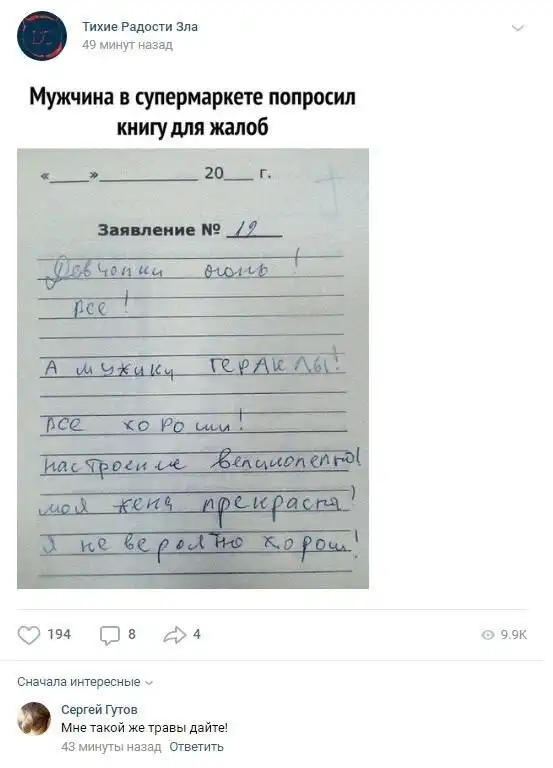 Тихие Радости Зла
49 минут назад
Мужчина в супермаркете попросил
книгу для жалоб
«___»__________ 20___ г.
Заявление № 19
Девчонки огонь!
Все!
А мужики ГЕРАКЛЫ!
все хороши!
настроение великолепно!
моя жена прекрасна!
Я не вероятно хорош!
194
8
4
9.9K
Сначала интересные
Сергей Гутов
Мне такой же травы дайте!
43 минуты назад Ответить